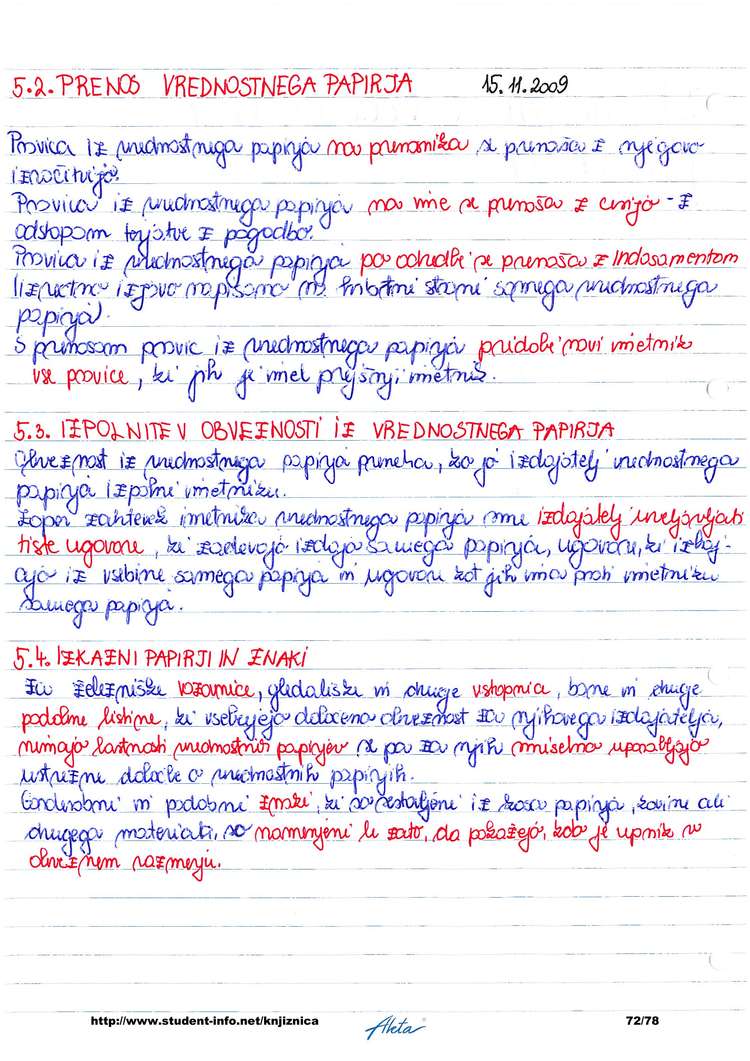 5.2. PRENOS VREDNOSTNEGA PAPIRJA 15.11.2009
Pravica iz vrednostnega papirja na prinosnika se prenaša z njegovo
izročitvijo.
Pravica iz vrednostnega papirja na ime se prenaša z cesijo - z
odstopom terjatve z pogodbo.
Pravica iz vrednostnega papirja po odredbi se prenaša z Indosamentom
(izrečno izjavo napisano na hrbtni strani samega vrednostnega
papirja).
S prenosom pravic iz vrednostnega papirja pridobi novi imetnik
vse pravice, ki jih je imel prejšnji imetnik.
5.3. IZPOLNITEV OBVEZNOSTI IZ VREDNOSTNEGA PAPIRJA
Obveznost iz vrednostnega papirja preneha, ko jo izdajatelj vrednostnega
papirja izpolni imetniku.
Zoper zahtevek imetnika vrednostnega papirja sme izdajatelj uveljavljati
tiste ugovore, ki zadevajo izdajo samega papirja, ugovore, ki izhaj-
ajo iz vsebine samega papirja in ugovore kot jih ima proti imetniku
samega papirja.
5.4. IZKAZNI PAPIRJI IN ZNAKI
Za železniške vozovnice, gledališke in druge vstopnice, bone in druge
podobne listine, ki vsebujejo določeno obveznost za njihovega izdajatelja,
nimajo lastnosti vrednostnih papirjev se pa za njih smiselno uporabljajo
ustrezne določbe o vrednostnih papirjih.
Garderobni in podobni znaki, ki so sestavljeni iz kosa papirja, kovine ali
drugega materiala, so namenjeni le zato, da pokažejo, kdo je upnik v
obveznem razmerju.
http://www.student-info.net/knjiznica
Aleta
72/78